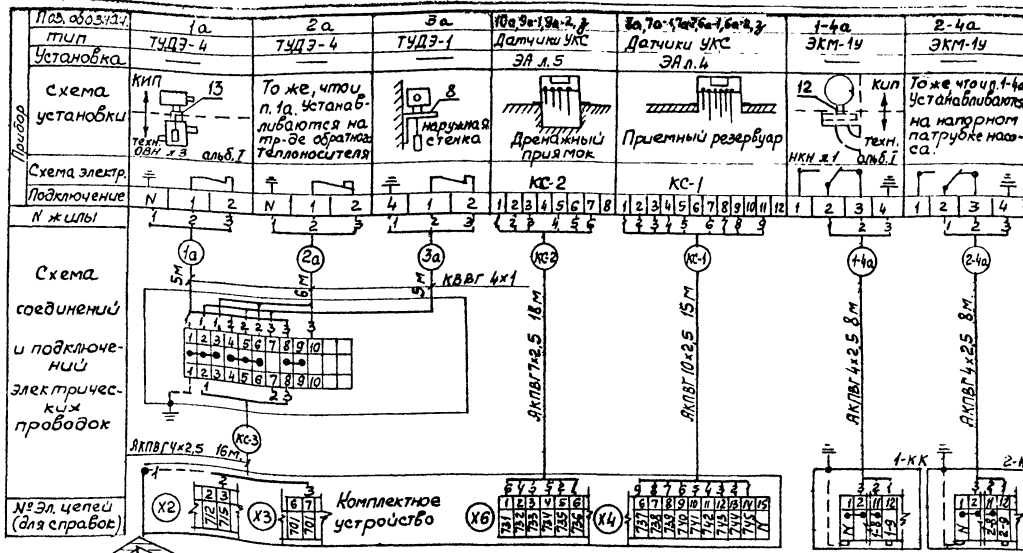 Поз. обознач.
1а
2а
3а
10а, 9а-1, 9а-2, 
8а, 7а-1, 7а-2, 6а-1, 6а-2, 
1-4а
2-4а
тип
ТУДЭ-4
ТУДЭ-4
ТУДЭ-1
Датчики УКС
Датчики УКС
ЭКМ-1У
ЭКМ-1У
Установка
ЭА л.5
ЭА л.4
Прибор
Схема
установки
КИП
13
техн.
ОВН х 3
альб. I
То же, что и
п. 1а. Устанав-
ливаются на
тр-де обратного
теплоносителя
8
наружная
стенка
Дренажный
приямок
Приемный резервуар
12
КИП
техн.
НКН х 1
альб. I
То же что и п. 1-4а
Устанавливаются
на напорном
патрубке насо-
са.
Схема электр.
КС-2
КС-1
Подключение
N 1 2
N 1 2
4 1 2
1 2 3 4 5 6 7 8
1 2 3 4 5 6 7 8 9 10 11 12
1 2 3 4
1 2 3 4
N жилы
1 2 3
1 2 3
1 2 3
1 2 3 4 5 6
1 2 3 4 5 6 7 8 9
1 2 3
1 2 3
Схема
соединений
и подключе-
ний
электричес-
ких
проводок
1а
2а
3а
КС-2
КС-1
1-4а
2-4а
5м
6м
5м
КВВГ 4х1
АКПВГ 7х2,5 18м
АКПВГ 10х2,5 15м
АКПВГ 4х2,5 8м
АКПВГ 4х2,5 8м
1 1 1 2 2 2 3 3 3
1 2 3 4 5 6 7 8 9 10
1 2 3 4 5 6 7 8 9 10
1 2 3
КС-3
АКПВГ 4х2,5 16м.
1-КК
2-К
№ Эл. цепей
(для справок)
1
2
3
Х2
2 3
712 715
Х3
6 7
701 701
Комплектное
устройство
Х6
6 4 5 3 2 1
1 2 3 4 5 6
731 732 733 734 735 736
Х4
9 8 7 6 5 4 3 2 1
6 7 8 9 10 11 12 13 14 15
737 738 739 740 741 742 743 744 745 N
3 2 1
1 2 11 12
N 1-8 1-9
3 2 1
1 2 11 12
N 2-8 2-9